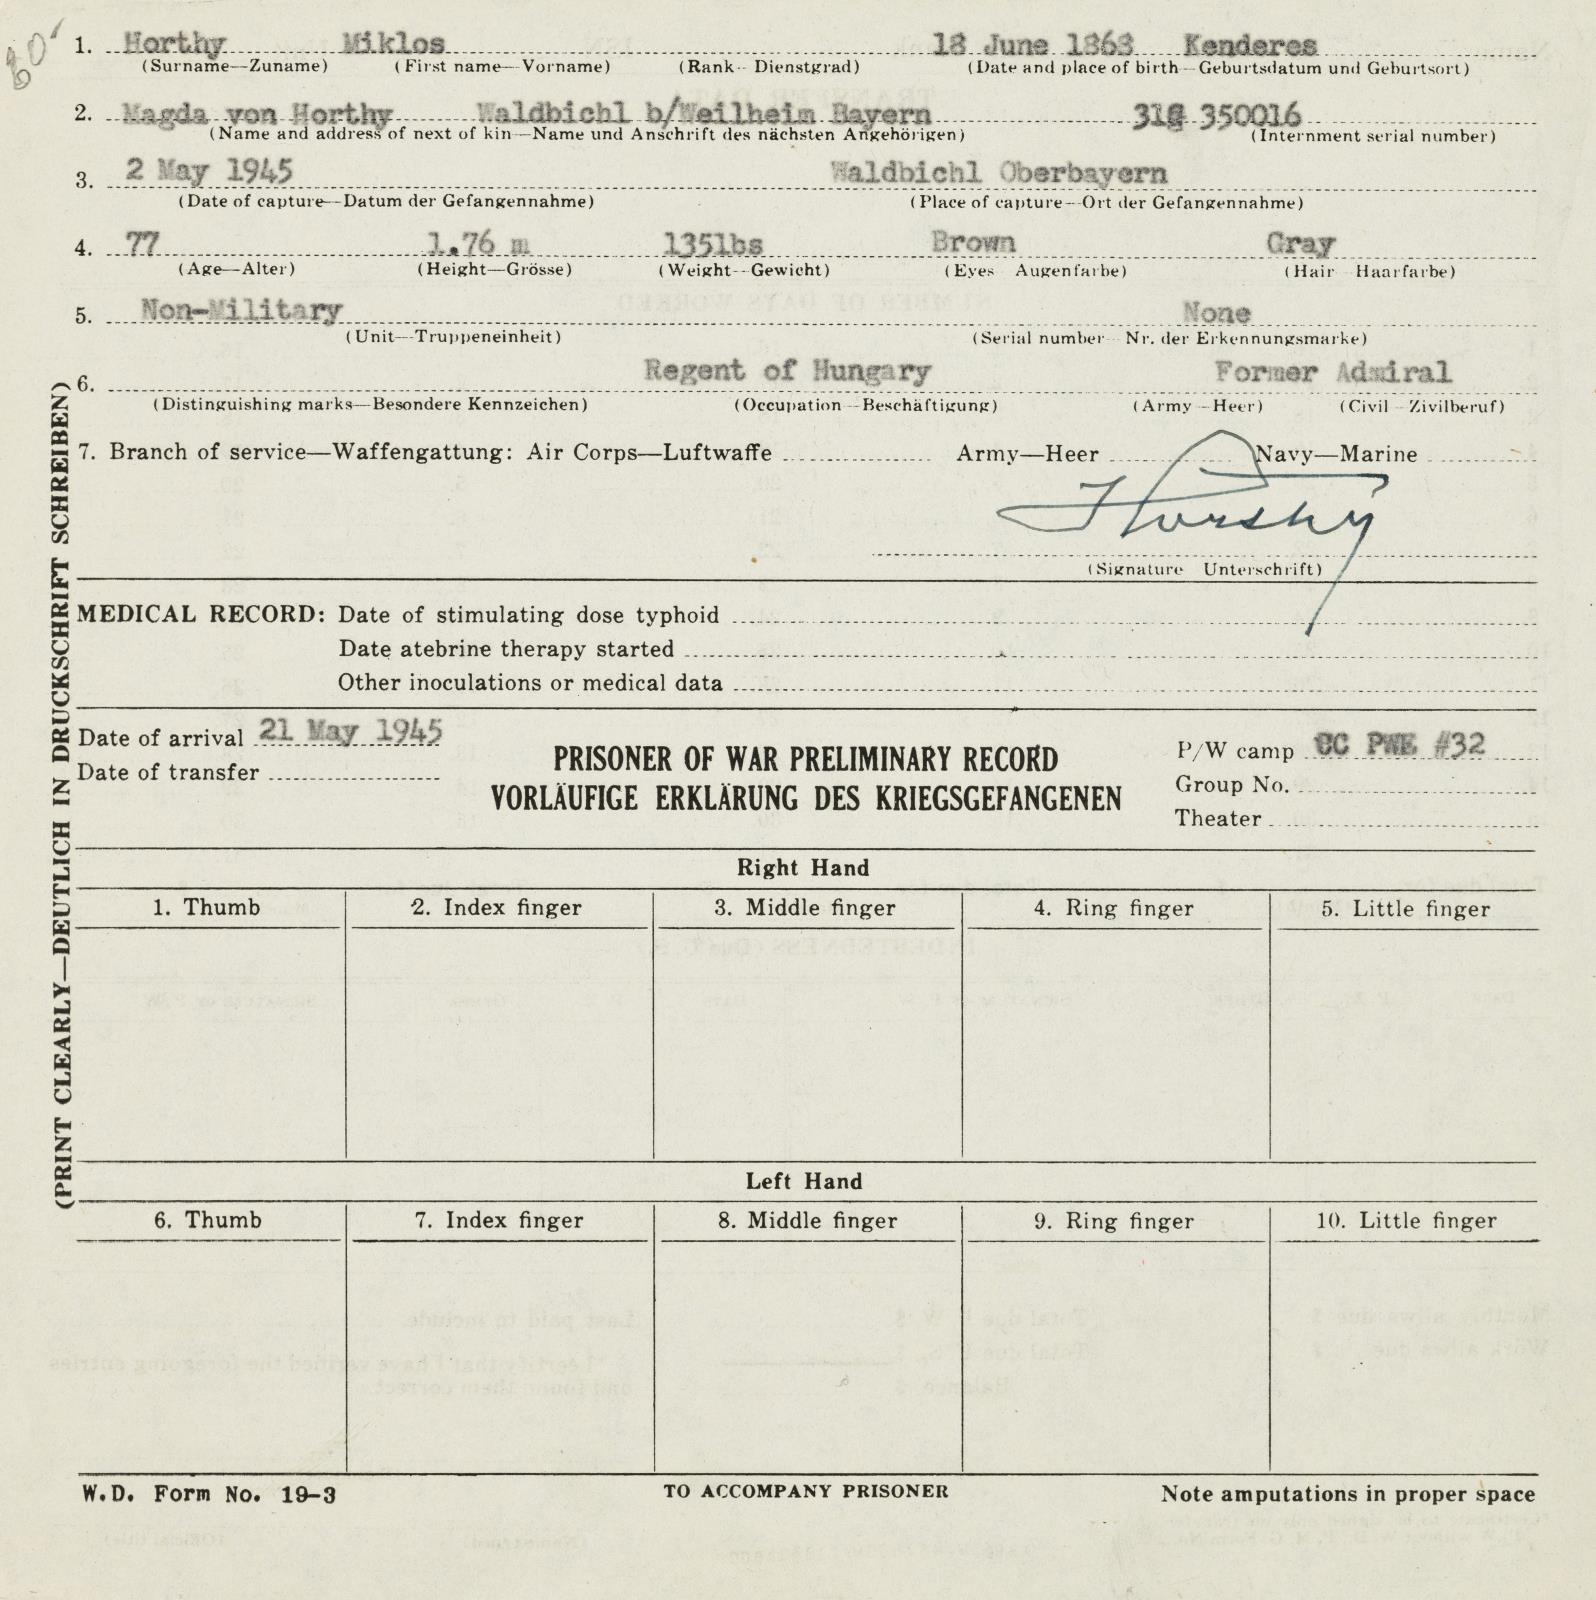 80'
1. Horthy Miklos 18 June 1868 Kenderes
(Surname—Zuname) (First name—Vorname) (Rank—Dienstgrad) (Date and place of birth—Geburtsdatum und Geburtsort)
2. Magda von Horthy Waldbichl b/Weilheim Bayern 31G 350016
(Name and address of next of kin—Name und Anschrift des nächsten Angehörigen) (Internment serial number)
3. 2 May 1945 Waldbichl Oberbayern
(Date of capture—Datum der Gefangennahme) (Place of capture—Ort der Gefangennahme)
4. 77 1.76 m 135lbs Brown Gray
(Age—Alter) (Height—Grösse) (Weight—Gewicht) (Eyes Augenfarbe) (Hair Haarfarbe)
5. Non-Military None
(Unit—Truppeneinheit) (Serial number Nr. der Erkennungsmarke)
6. Regent of Hungary Former Admiral
(Distinguishing marks—Besondere Kennzeichen) (Occupation—Beschäftigung) (Army—Heer) (Civil—Zivilberuf)
7. Branch of service—Waffengattung: Air Corps—Luftwaffe Army—Heer Navy—Marine
Horthy
(Signature Unterschrift)
MEDICAL RECORD: Date of stimulating dose typhoid
Date atebrine therapy started
Other inoculations or medical data
Date of arrival 21 May 1945
Date of transfer
PRISONER OF WAR PRELIMINARY RECORD
VORLÄUFIGE ERKLÄRUNG DES KRIEGSGEFANGENEN
P/W camp CC PWE #32
Group No.
Theater
Right Hand
1. Thumb 2. Index finger 3. Middle finger 4. Ring finger 5. Little finger
Left Hand
6. Thumb 7. Index finger 8. Middle finger 9. Ring finger 10. Little finger
W.D. Form No. 19-3 TO ACCOMPANY PRISONER Note amputations in proper space
(PRINT CLEARLY—DEUTLICH IN DRUCKSCHRIFT SCHREIBEN)